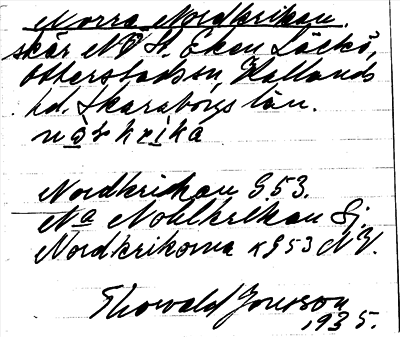 Norra Nordkrikan.
skär NV St. Eken Läckö,
Otterstads sn, Kållands
hd. Skaraborgs län.
Nordkrikan G53.
Na Nohlkrikan Sj.
Nordkrikorna G53 NV.
Thorvald Jonsson
1935.